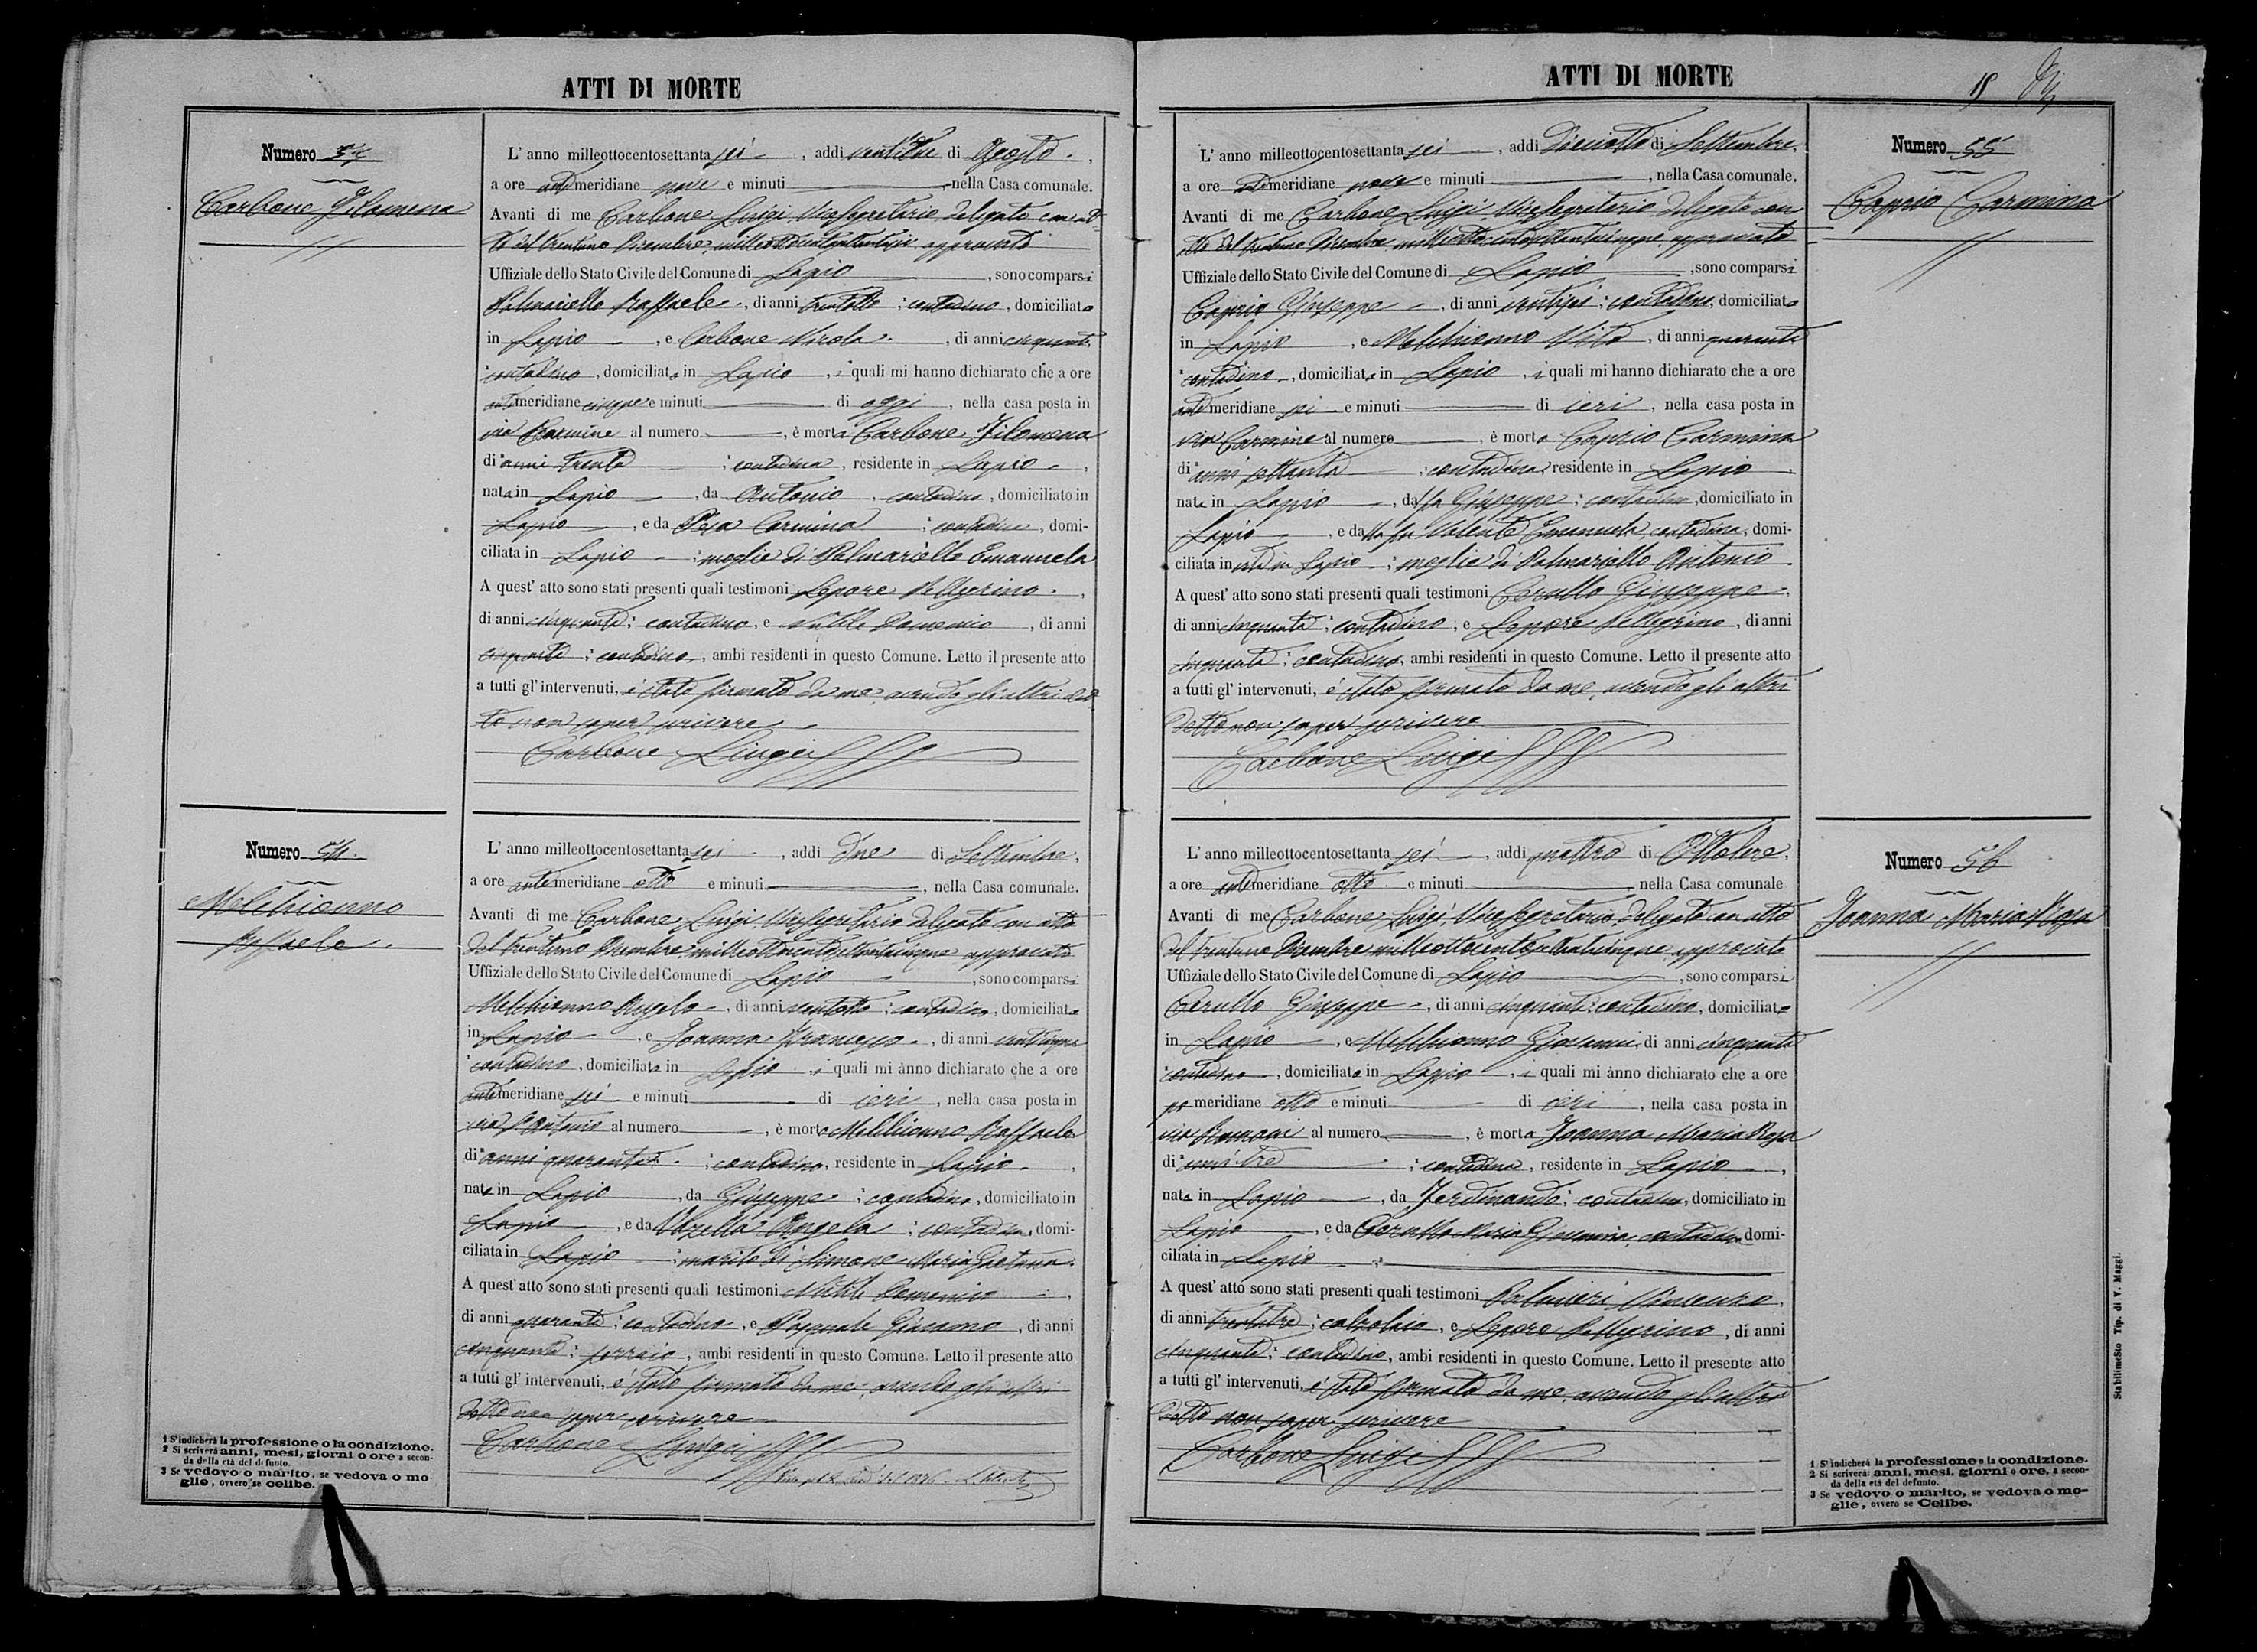 ATTI DI MORTE
Numero
Carbone Filomena
L' anno milleottocentosettanta sei, addi di Agosto,
a ore antimeridiane nove e minuti, nella Casa comunale.
Avanti di me Carbone Luigi Vice Segretario delegato con at-
to del trentuno Dicembre milleottocentosettantacinque approvato
Uffiziale dello Stato Civile del Comune di Lapio, sono comparsi
Palmariello Raffaele, di anni trentotto; contadino, domiciliato
in Lapio, e Carbone Nicola, di anni cinquanta
contadino, domiciliato in Lapio, i quali mi hanno dichiarato che a ore
antimeridiane cinque e minuti di oggi, nella casa posta in
via Carmine al numero, è morta Carbone Filomena
di anni trenta; contadina, residente in Lapio,
nata in Lapio, da Antonio, contadino, domiciliato in
Lapio, e da Pesa Carmina; contadina, domi-
ciliata in Lapio; moglie di Palmariello Emanuele
A quest' atto sono stati presenti quali testimoni Lepore Pellegrino,
di anni cinquanta; contadino, e Domenico, di anni
cinquanta; contadino, ambi residenti in questo Comune. Letto il presente atto
a tutti gl' intervenuti, è stato firmato da me, avendo gli altri det
to non saper scrivere
Carbone Luigi
Numero 54.
Melchionno
Raffaele.
L' anno milleottocentosettanta sei, addi due di Settembre,
a ore antimeridiane otto e minuti, nella Casa comunale.
Avanti di me Carbone Luigi Vice Segretario delegato con atto
del trentuno Dicembre milleottocentosettantacinque approvato
Uffiziale dello Stato Civile del Comune di Lapio, sono comparsi
Melchionno Angelo, di anni ventotto; contadino, domiciliato
in Lapio, e Joanna Francesco, di anni venticinque
contadino, domiciliato in Lapio, i quali mi ànno dichiarato che a ore
antimeridiane sei e minuti di ieri, nella casa posta in
via S. Antonio al numero, è morto Melchionno Raffaele
di anni quaranta; contadino, residente in Lapio,
nato in Lapio, da Giuseppe; contadino, domiciliato in
Lapio, e da Angela; contadina, domi-
ciliata in Lapio; marito di Simone Maria Gaetana.
A quest' atto sono stati presenti quali testimoni Domenico,
di anni quaranta; contadino, e Pasquale Giacomo, di anni
cinquanta; ferraio, ambi residenti in questo Comune. Letto il presente atto
a tutti gl' intervenuti, è stato firmato da me, avendo gli altri
detto non saper scrivere
Carbone Luigi
1 S'indicherà la professione o la condizione.
2 Si scriverà anni, mesi, giorni o ore a secon-
da della età del defunto.
3 Se vedovo o marito, se vedova o mo-
glie, ovvero se celibe.
ATTI DI MORTE
Numero 55
Caprio Carmina
L' anno milleottocentosettanta sei, addi Diciotto di Settembre,
a ore antimeridiane nove e minuti, nella Casa comunale.
Avanti di me Carbone Luigi Vice Segretario delegato con
atto del trentuno Dicembre milleottocentosettantacinque approvato
Uffiziale dello Stato Civile del Comune di Lapio, sono comparsi
Caprio Giuseppe, di anni ventisei; contadino, domiciliato
in Lapio, e Melchionno Vito, di anni quaranta
contadino, domiciliato in Lapio, i quali mi hanno dichiarato che a ore
antimeridiane sei e minuti di ieri, nella casa posta in
via Carmine al numero, è morta Caprio Carmina
di anni settanta; contadina, residente in Lapio
nata in Lapio, da fu Giuseppe; contadino, domiciliato in
Lapio, e da fu Valente Emanuela contadina, domi-
ciliata in vita in Lapio; moglie di Palmariello Antonio
A quest' atto sono stati presenti quali testimoni Cerullo Giuseppe,
di anni cinquanta; contadino, e Lepore Pellegrino, di anni
cinquanta; contadino, ambi residenti in questo Comune. Letto il presente atto
a tutti gl' intervenuti, è stato firmato da me, avendo gli altri
detto non saper scrivere
Carbone Luigi
Numero 56
Joanna Maria Rosa
L' anno milleottocentosettanta sei, addi quattro di Ottobre,
a ore antimeridiane otto e minuti nella Casa comunale
Avanti di me Carbone Luigi Vice Segretario delegato con atto
del trentuno Dicembre milleottocentosettantacinque approvato
Uffiziale dello Stato Civile del Comune di Lapio, sono comparsi
Cerullo Giuseppe, di anni cinquanta; contadino, domiciliato
in Lapio, e Melchionno Giovanni, di anni cinquanta
contadino, domiciliato in Lapio, i quali mi ànno dichiarato che a ore
po meridiane otto e minuti di ieri, nella casa posta in
via al numero, è morta Joanna Maria Rosa
di anni tre; contadina, residente in Lapio,
nata in Lapio, da Ferdinando; contadino, domiciliato in
Lapio, e da Cerullo Maria Giovannia, contadina domi-
ciliata in Lapio
A quest' atto sono stati presenti quali testimoni Palmieri Vincenzo,
di anni trentatre; calzolaio, e Lepore Pellegrino, di anni
cinquanta; contadino, ambi residenti in questo Comune. Letto il presente atto
a tutti gl' intervenuti, è stato firmato da me, avendo gli altri
detto non saper scrivere
Carbone Luigi
1 S'indicherà la professione o la condizione.
2 Si scriverà: anni, mesi, giorni o ore, a secon-
da della età del defunto.
3 Se vedovo o marito, se vedova o mo-
glie, ovvero se Celibe.
Stabilimesto Tip. di V. Maggi.